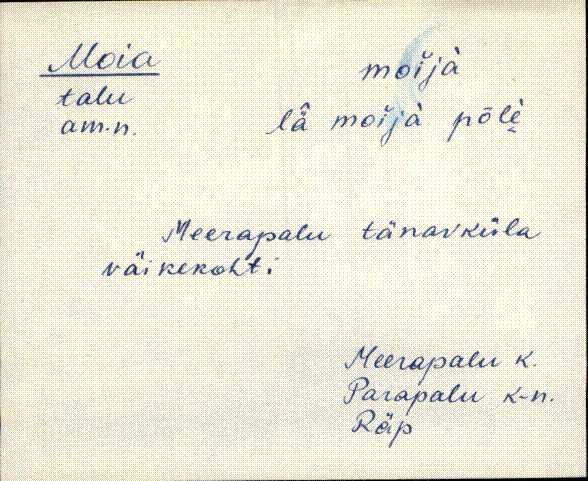 Moia
talu
am.n.
moĭjà
lä̂ moĭjà põlè̬
Meerapalu tänavküla
väikekohti
Meerapalu k.
Parapalu k-n.
Räp